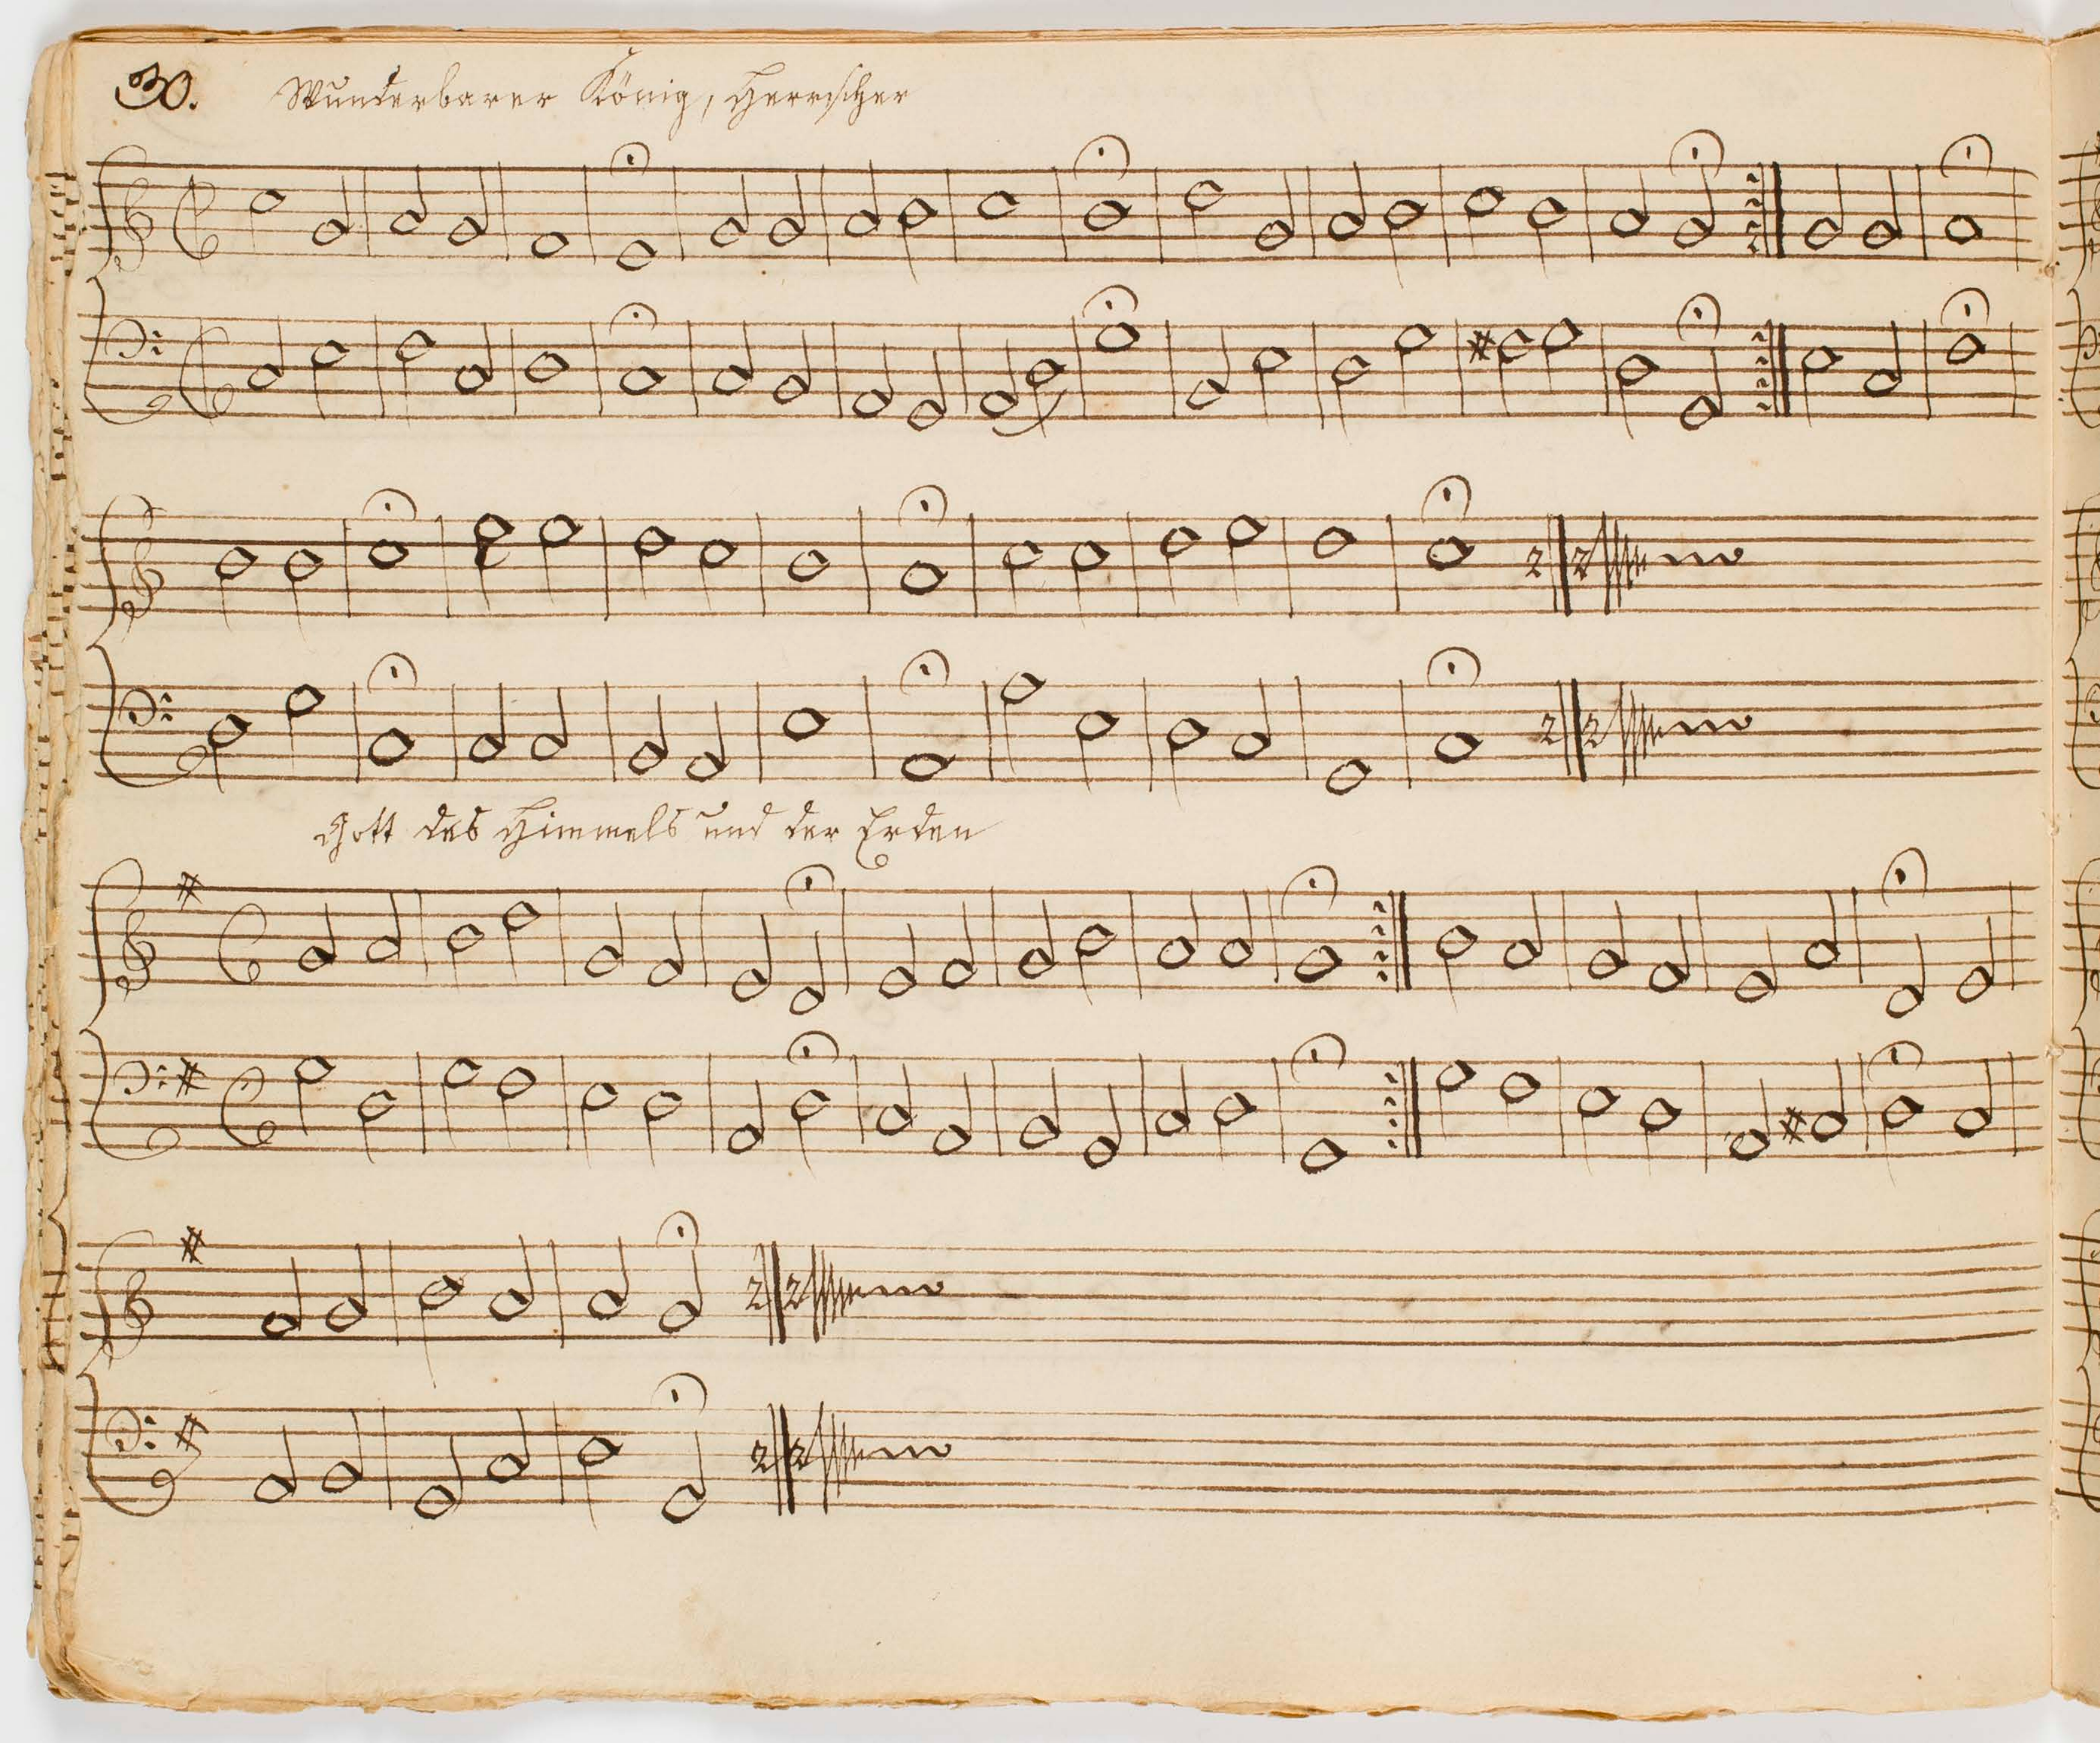 30.
Wunderbarer König, Herrscher
Gott des Himmels und der Erden